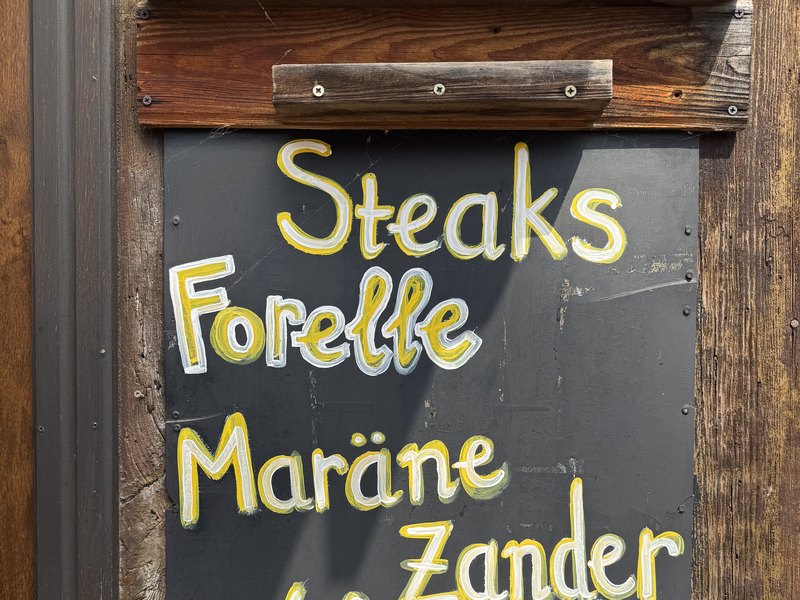 Steaks
Forelle
Maräne
Zander